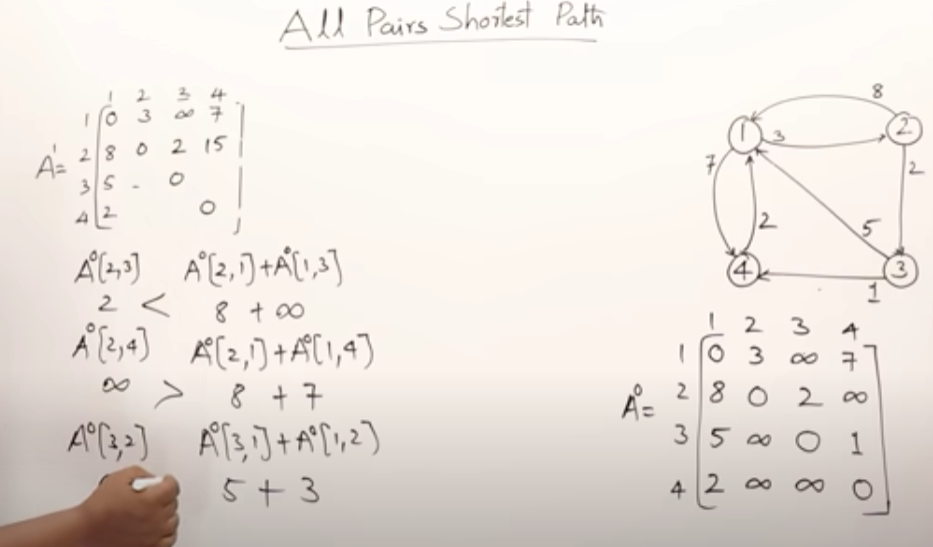 All Pairs Shortest Path
1 2 3 4
1 0 3 ∞ 7
A¹= 2 8 0 2 15
3 5 - 0
4 2 0
A⁰[2,3] A⁰[2,1]+A⁰[1,3]
2 < 8 + ∞
A⁰[2,4] A⁰[2,1]+A⁰[1,4]
∞ > 8 + 7
A⁰[3,2] A⁰[3,1]+A⁰[1,2]
5 + 3
8
1 3 2
7 2
2 5
4 3
1
1 2 3 4
1 0 3 ∞ 7
A⁰= 2 8 0 2 ∞
3 5 ∞ 0 1
4 2 ∞ ∞ 0